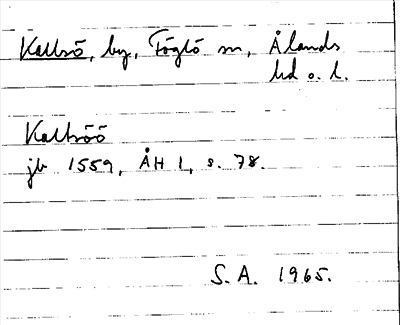 Kallsö, by, Föglö sn, Ålands
hd o. l.
Kallsöö
jb 1559, ÅH 1, s. 78.
S. A. 1965.